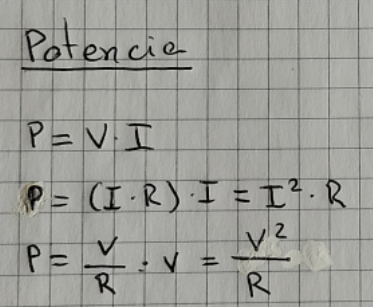 Potencia
P = V · I
P = (I · R) · I = I² · R
P = V/R · V = V²/R